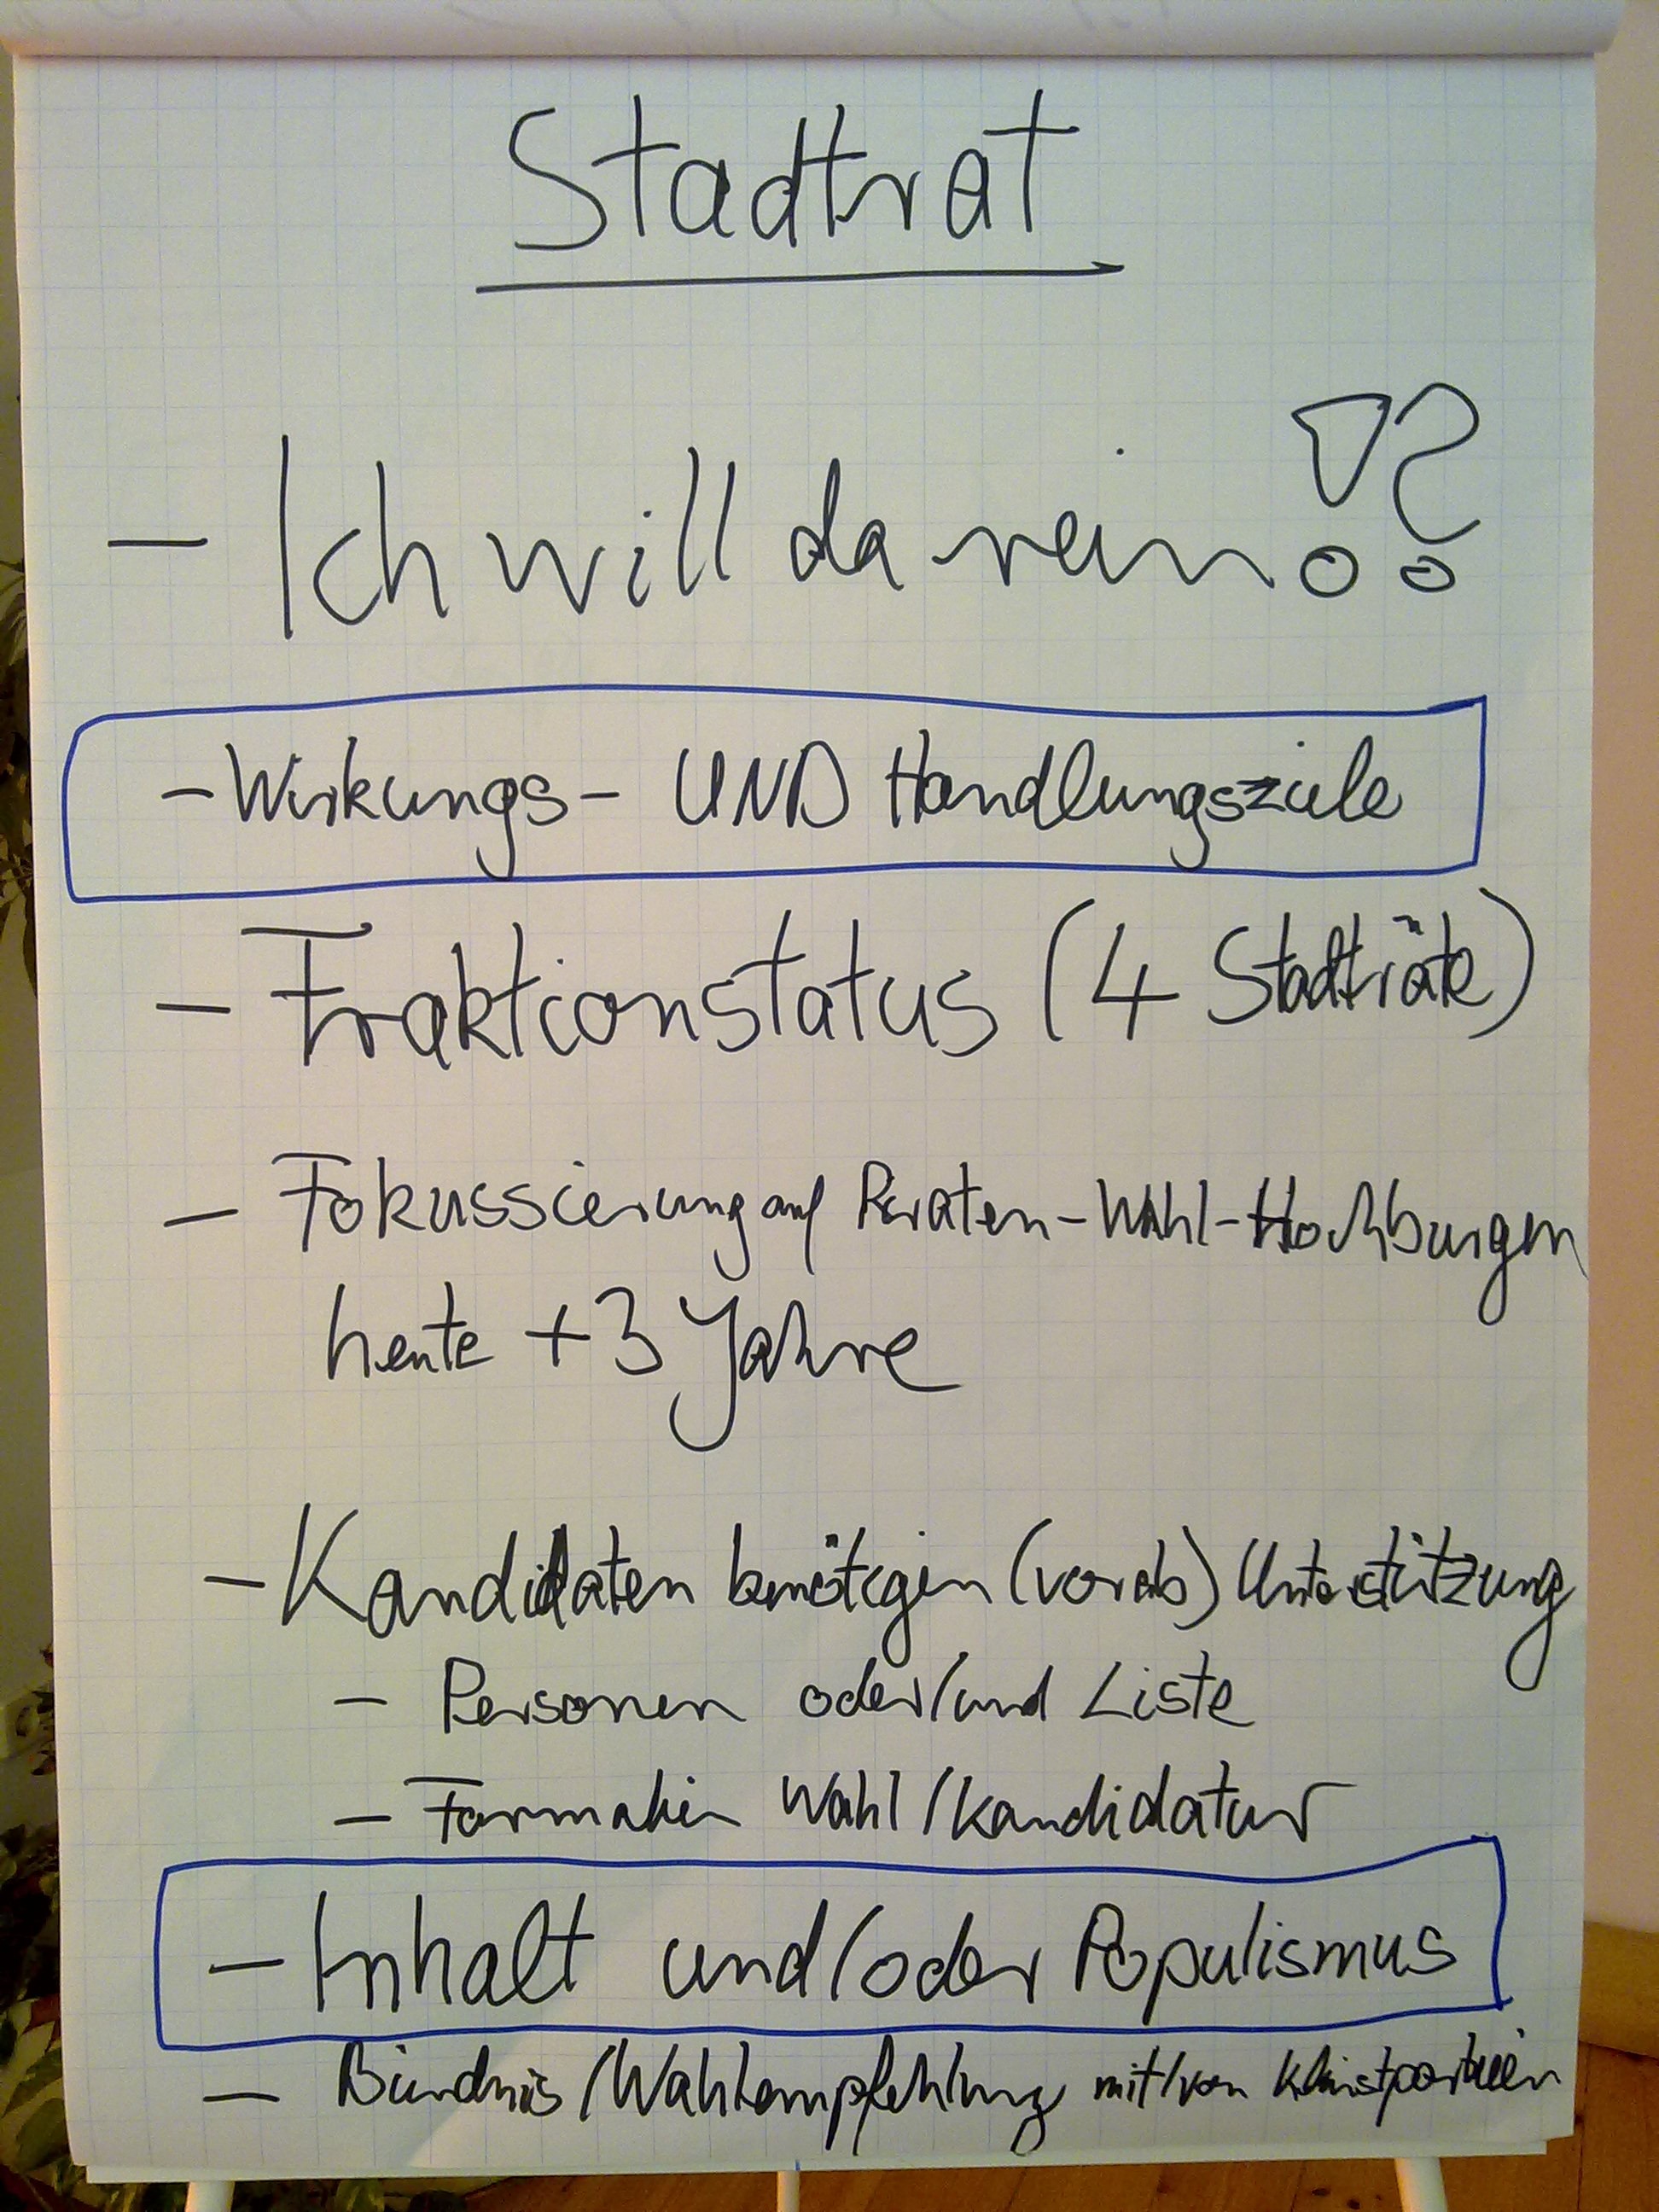 Stadtrat
- Ich will da rein!?
- Wirkungs- UND Handlungsziele
- Fraktionstatus (4 Stadträte)
- Fokussierung auf Piraten-Wahl-Hochburgen
heute + 3 Jahre
- Kandidaten benötigen (vorab) Unterstützung
- Personen oder/und Liste
- Formalien Wahl/Kandidatur
- Inhalt und/oder Populismus
- Bündnis/Wahlempfehlung mit/von Kleinstparteien